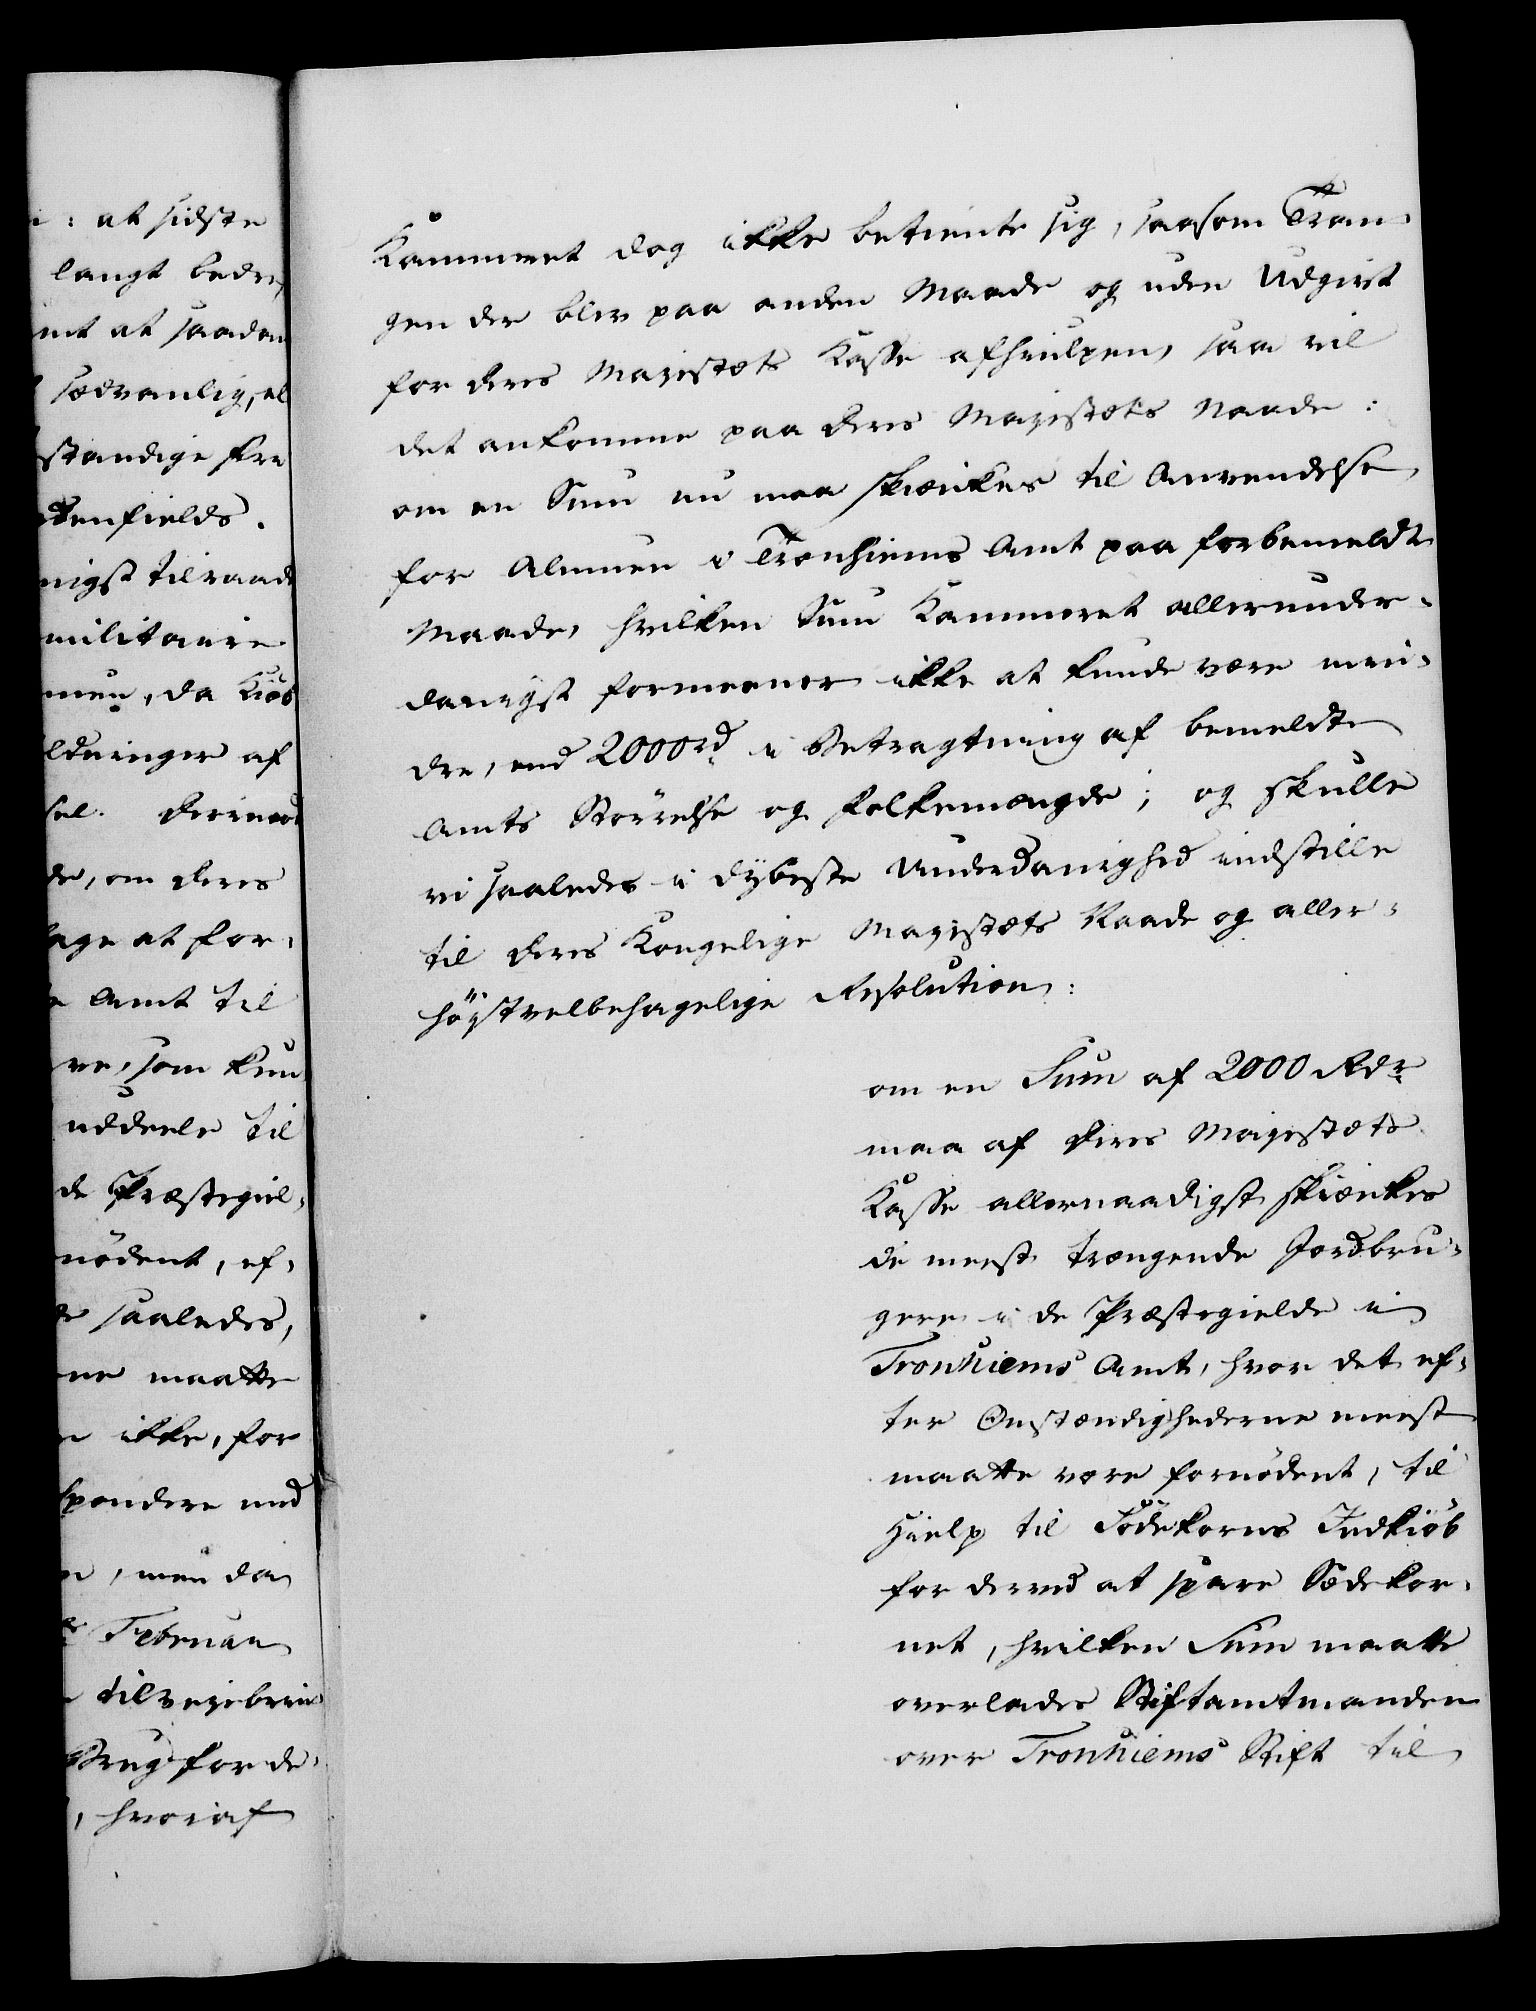 : at sidste
langt bedre,
mt at saadan
sædvanlig, el
standige fra
denfields.
nigst tilraade
militaire
men, da Kiøb
ldninger af
sel. Derimod
de, om Deres
age at for-
e Amt til
re, som kun
uddeele til
de Præstegiel-
nödent, ef-
saaledes,
ne maatte
ikke, for
spondere med
, men da
Februar
tilveyebrin
Brug for de-
, hvoraf
Kammeret dog ikke betiente sig, saasom Tran-
gen der blev paa anden Maade og uden Udgivt
for Deres Majestæts Kasse afhiulpen, saa vil
det ankomme paa Deres Majestæts Naade:
om en Sum nu maa skienkes til Anvendelse
for Almuen i Tronhiems Amt paa forbemeldte
Maade, hvilken Sum Kammeret allerunder-
danigst formeener ikke at kunde være min-
dre, end 2000 rd i Betragtning af bemeldte
Amts Störrelse og Folkemængde; og skulle
vi saaledes i dybeste Underdanighed indstille
til Deres Kongelige Majestæts Naade og aller-
höystvelbehagelige Resolution:
om en Sum af 2000 Rdr
maa af Deres Majestæts
Kasse allernaadigst skienkes
de meest trængende Jordbru-
gere i de Præstegielde i
Tronhiems Amt, hvor det ef-
ter Omstændighederne meest
maatte være fornödent, til
Hielp til Födekorns Indkiöb
for derved at spare Sædekor-
net, hvilken Sum maatte
overlades Stiftamtmanden
over Tronhiems Stift til